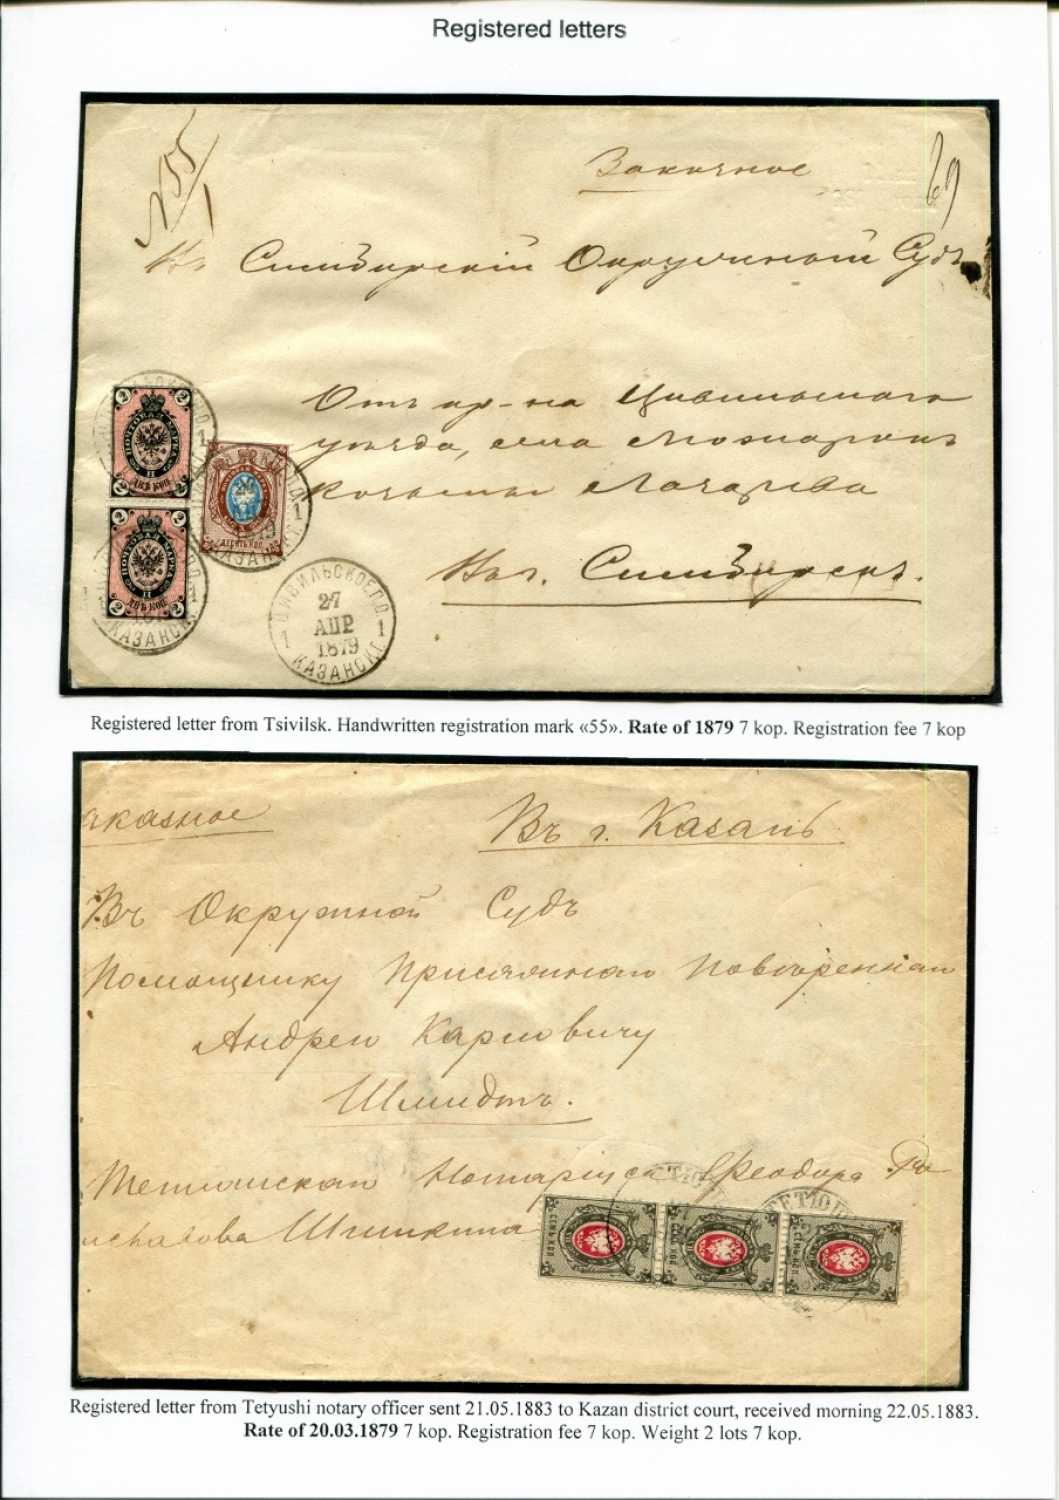 Registered letters
№ 55/1
Заказное
69
Въ Симбирскій Окружный Судъ
Отъ кр-на Цивильскаго
уѣзда, села
Лазарева
Въ г. Симбирскъ.
2 2
ПОЧТОВАЯ МАРКА
ДВѢ КОП.
2 2
2 2
ПОЧТОВАЯ МАРКА
ДВѢ КОП.
2 2
ДЕСЯТЬ КОП.
ЦИВИЛЬСКОЕ П.О.
1 27 1
АПР
1879
КАЗАНСК.Г.
Registered letter from Tsivilsk. Handwritten registration mark «55». Rate of 1879 7 kop. Registration fee 7 kop
аказное
Въ г. Казань
Въ Окружной Судъ
Помощнику Присяжнаго Повѣреннаго
Андрею Карловичу
Шмидтъ.
Тетюшскаго Нотаріуса Ѳеодора
Шишкина
СЕМЬ КОП.
СЕМЬ КОП.
СЕМЬ КОП.
ТЕТЮШ
Registered letter from Tetyushi notary officer sent 21.05.1883 to Kazan district court, received morning 22.05.1883.
Rate of 20.03.1879 7 kop. Registration fee 7 kop. Weight 2 lots 7 kop.